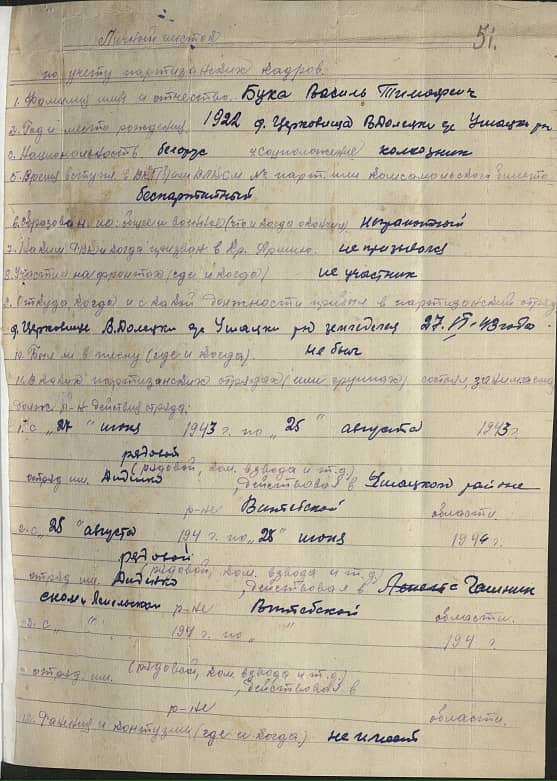 51.
Личный листок
по учету партизанских кадров.
1. Фамилия имя и отчество. Бука Василь Тимофеич
2. Год и место рождения 1922 д. Церковища В. Долецки Ушацки рн
3. Национальность белорус соцположение колхозник
5. Время вступл. в или ВЛКСМ № парт. или комсомольского билета
беспартийный
6. Образован. общее и военное (что и когда окончил) неграмотный
7. Каким РВК и когда призван в Кр. Армию. не призывался
8. Участие на фронтах (где и когда) не участник
9. Откуда когда и с какой должности прибыл в партизанский отряд
д. Церковище В. Долецки Ушацки рн земледелец 27. VI-43 года
10. Был ли в плену (где и когда). не был
11. В каких партизанских отрядах (или группах) состоял, занимаемая
должн. р-н действия отряда:
1. с "27" июня 1943 г. по "25" августа 1943 г
рядовой
(рядовой, ком. взвода и т.д.)
отряд им. действовал в Ушацком районе
р-не Витебской области.
2. с "25" августа 194 г. по "28" июня 1944 г.
рядовой
(рядовой, ком. взвода и т.д.)
отряд им. действовал в
р-не Витебской области.
3. с " " 194 г. по " 194 г.
(рядовой, ком. взвода и т.д.)
отряд им. действовал в
р-не области.
12. Ранения и контузии (где и когда) не имеет